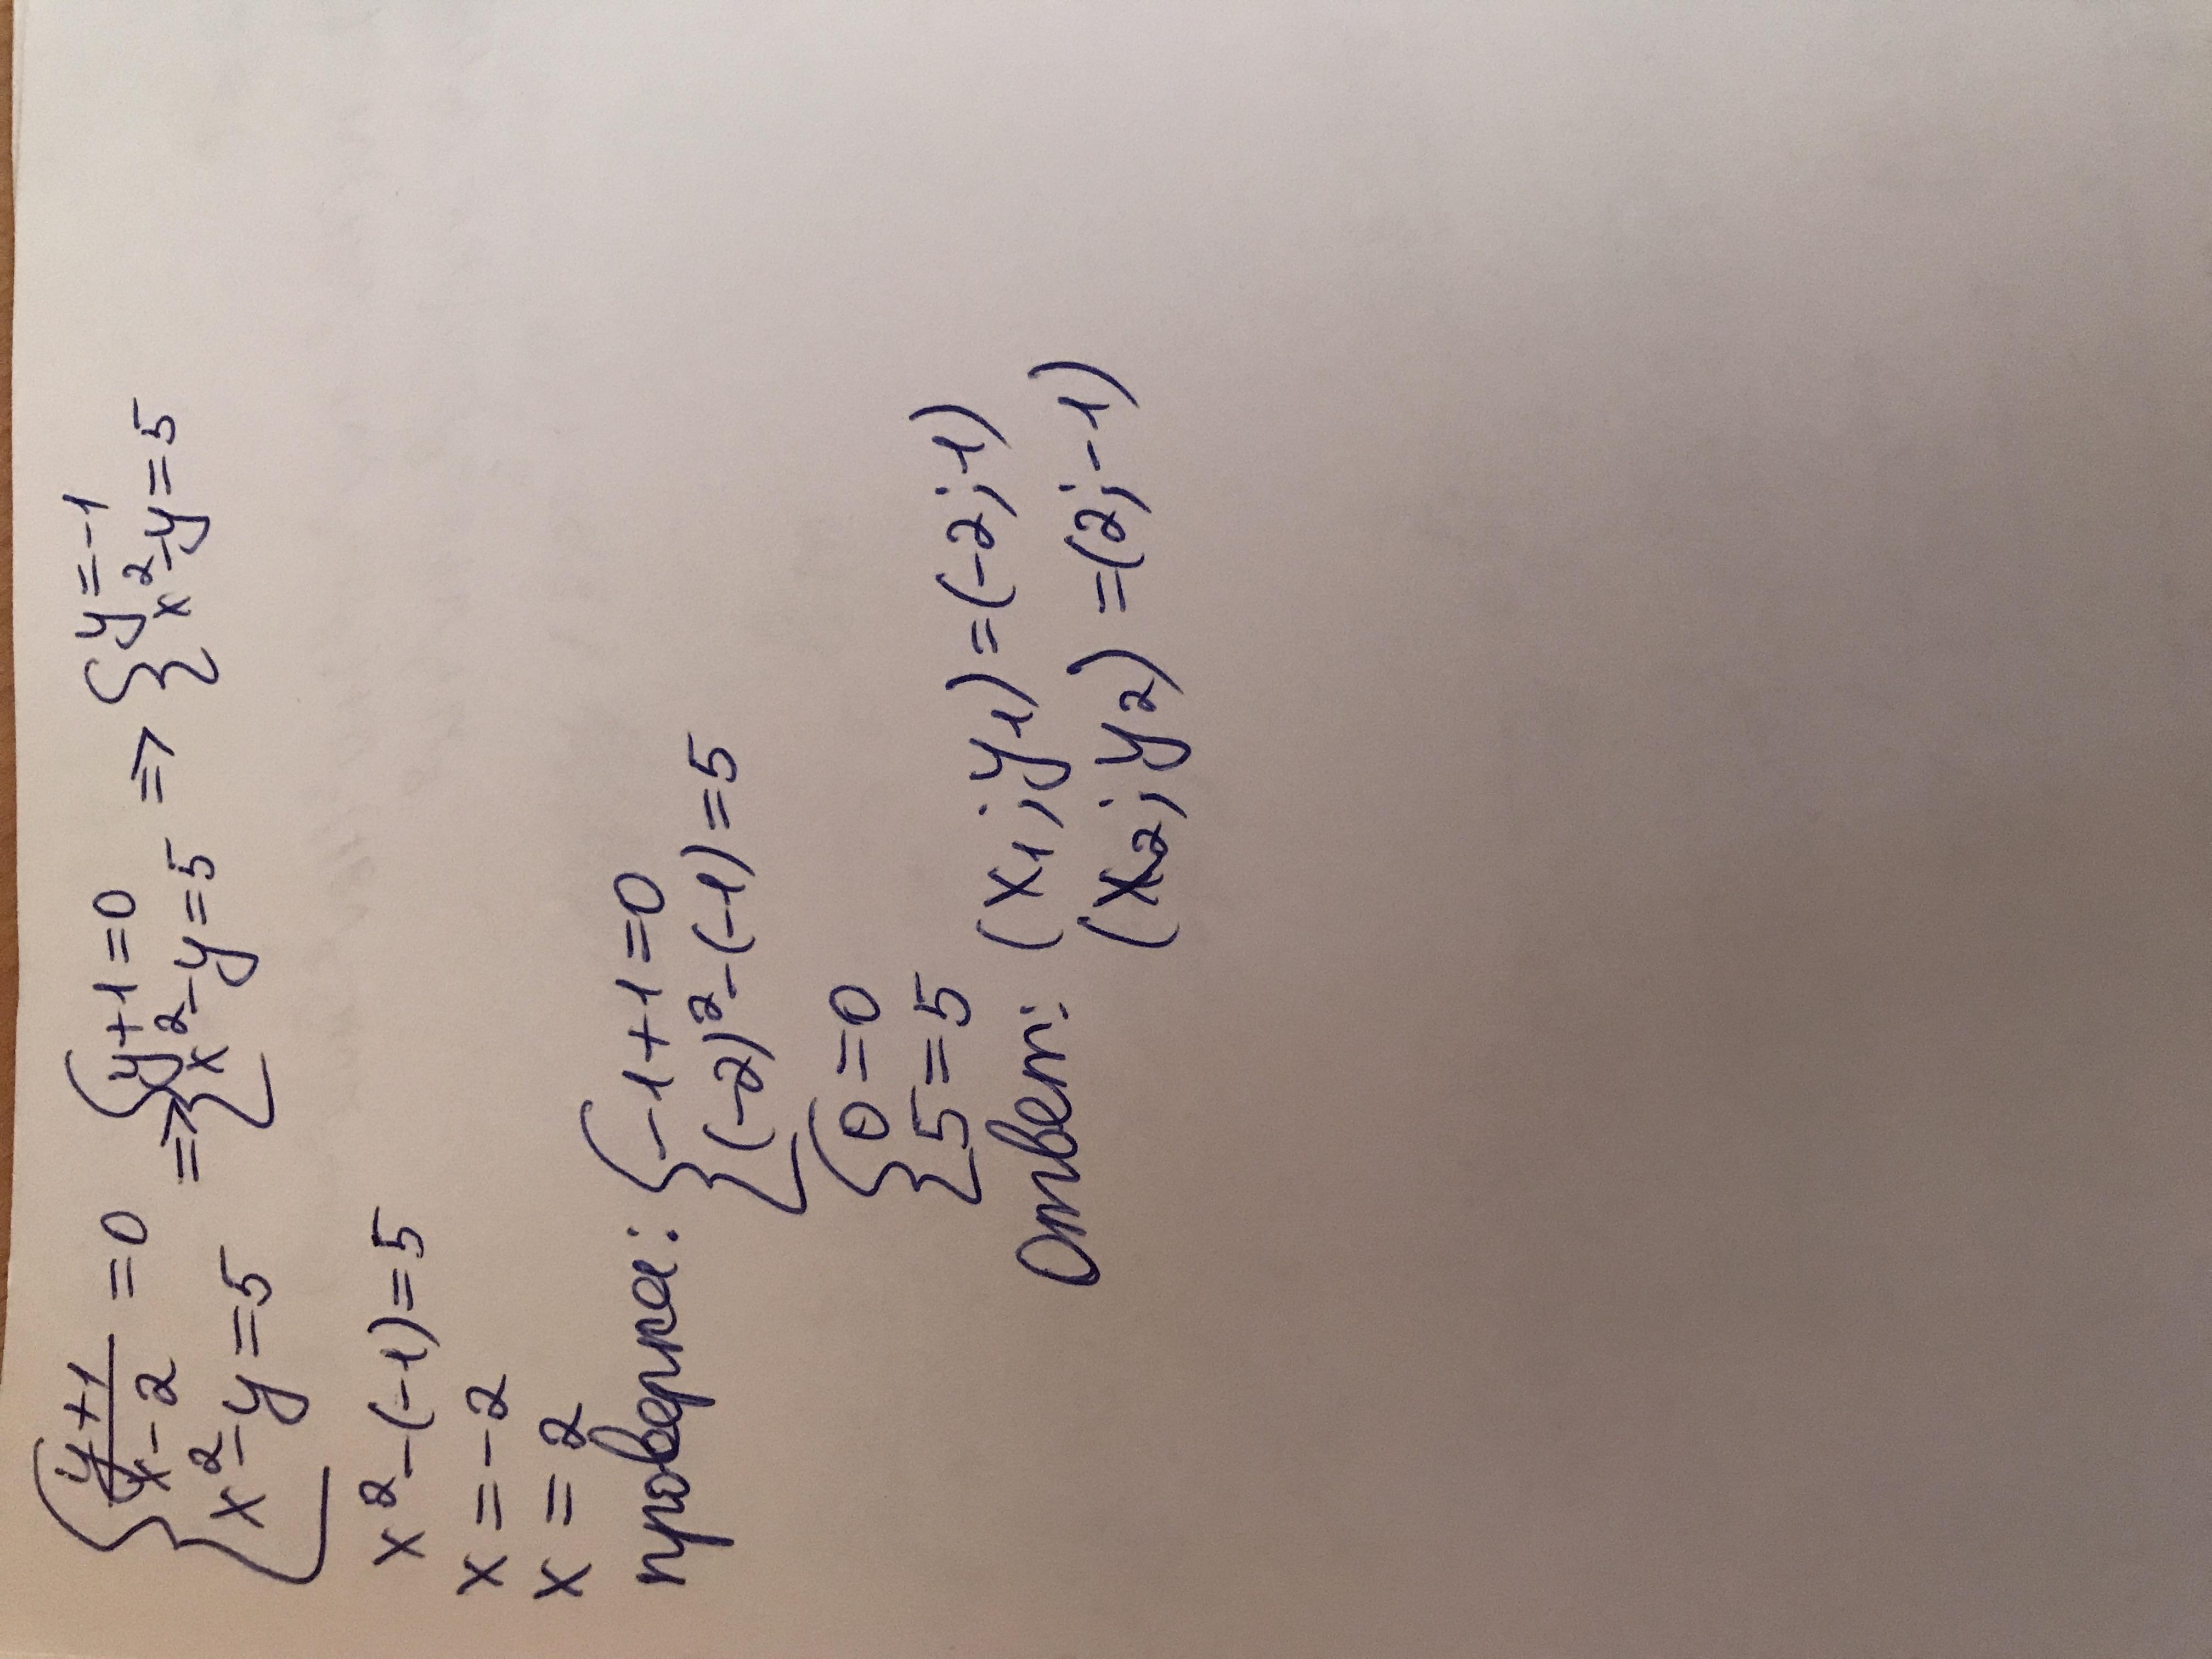 { y+1/x-2 =0 => { y+1=0 => { y=-1
x²-y=5 x²-y=5 x²-y=5
x²-(-1)=5
x=-2
x=2
проверка: { -1+1=0
(-2)²-(-1)=5
{ 0=0
5=5
Ответ: (x₁; y₁)=(-2;-1)
(x₂; y₂)=(2;-1)